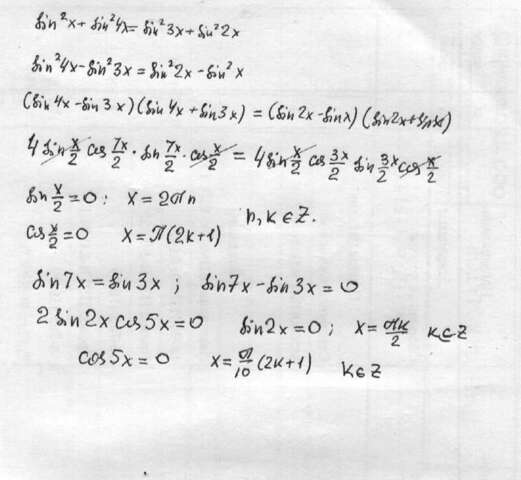 sin²x + sin²4x = sin²3x + sin²2x
sin²4x - sin²3x = sin²2x - sin²x
(sin 4x - sin 3x)(sin 4x + sin 3x) = (sin 2x - sin x)(sin 2x + sin x)
4 sin x/2 cos 7x/2 · sin 7x/2 · cos x/2 = 4 sin x/2 cos 3x/2 sin 3x/2 cos x/2
sin x/2 = 0 : x = 2πn
n, k ∈ Z.
cos x/2 = 0 x = π(2k+1)
sin 7x = sin 3x ; sin 7x - sin 3x = 0
2 sin 2x cos 5x = 0 sin 2x = 0 ; x = πk/2 k ∈ Z
cos 5x = 0 x = π/10 (2k+1) k ∈ Z